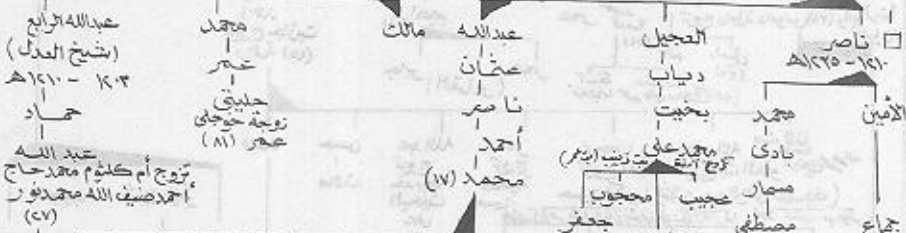 ناصر
١٢١٠ - ١٢٢٥هـ
الأمين
جماع
محمد
بادي
مسمار
مصطفى
العجيل
دياب
بخيت
محمد علي
عجيب
محجوب
جعفر
عبدالله
عثمان
ناصر
أحمد
محمد (١٧)
مالك
محمد
عمر
حليتي
زوجة حوجلي
عمر (٨١)
عبدالله الرابع
(شيخ العدل)
١٢٠٣ - ١٢١٠هـ
حماد
عبد الله
تزوج أم كلثوم محمد حاج
أحمد ضيف الله محمد نور
(٢٧)